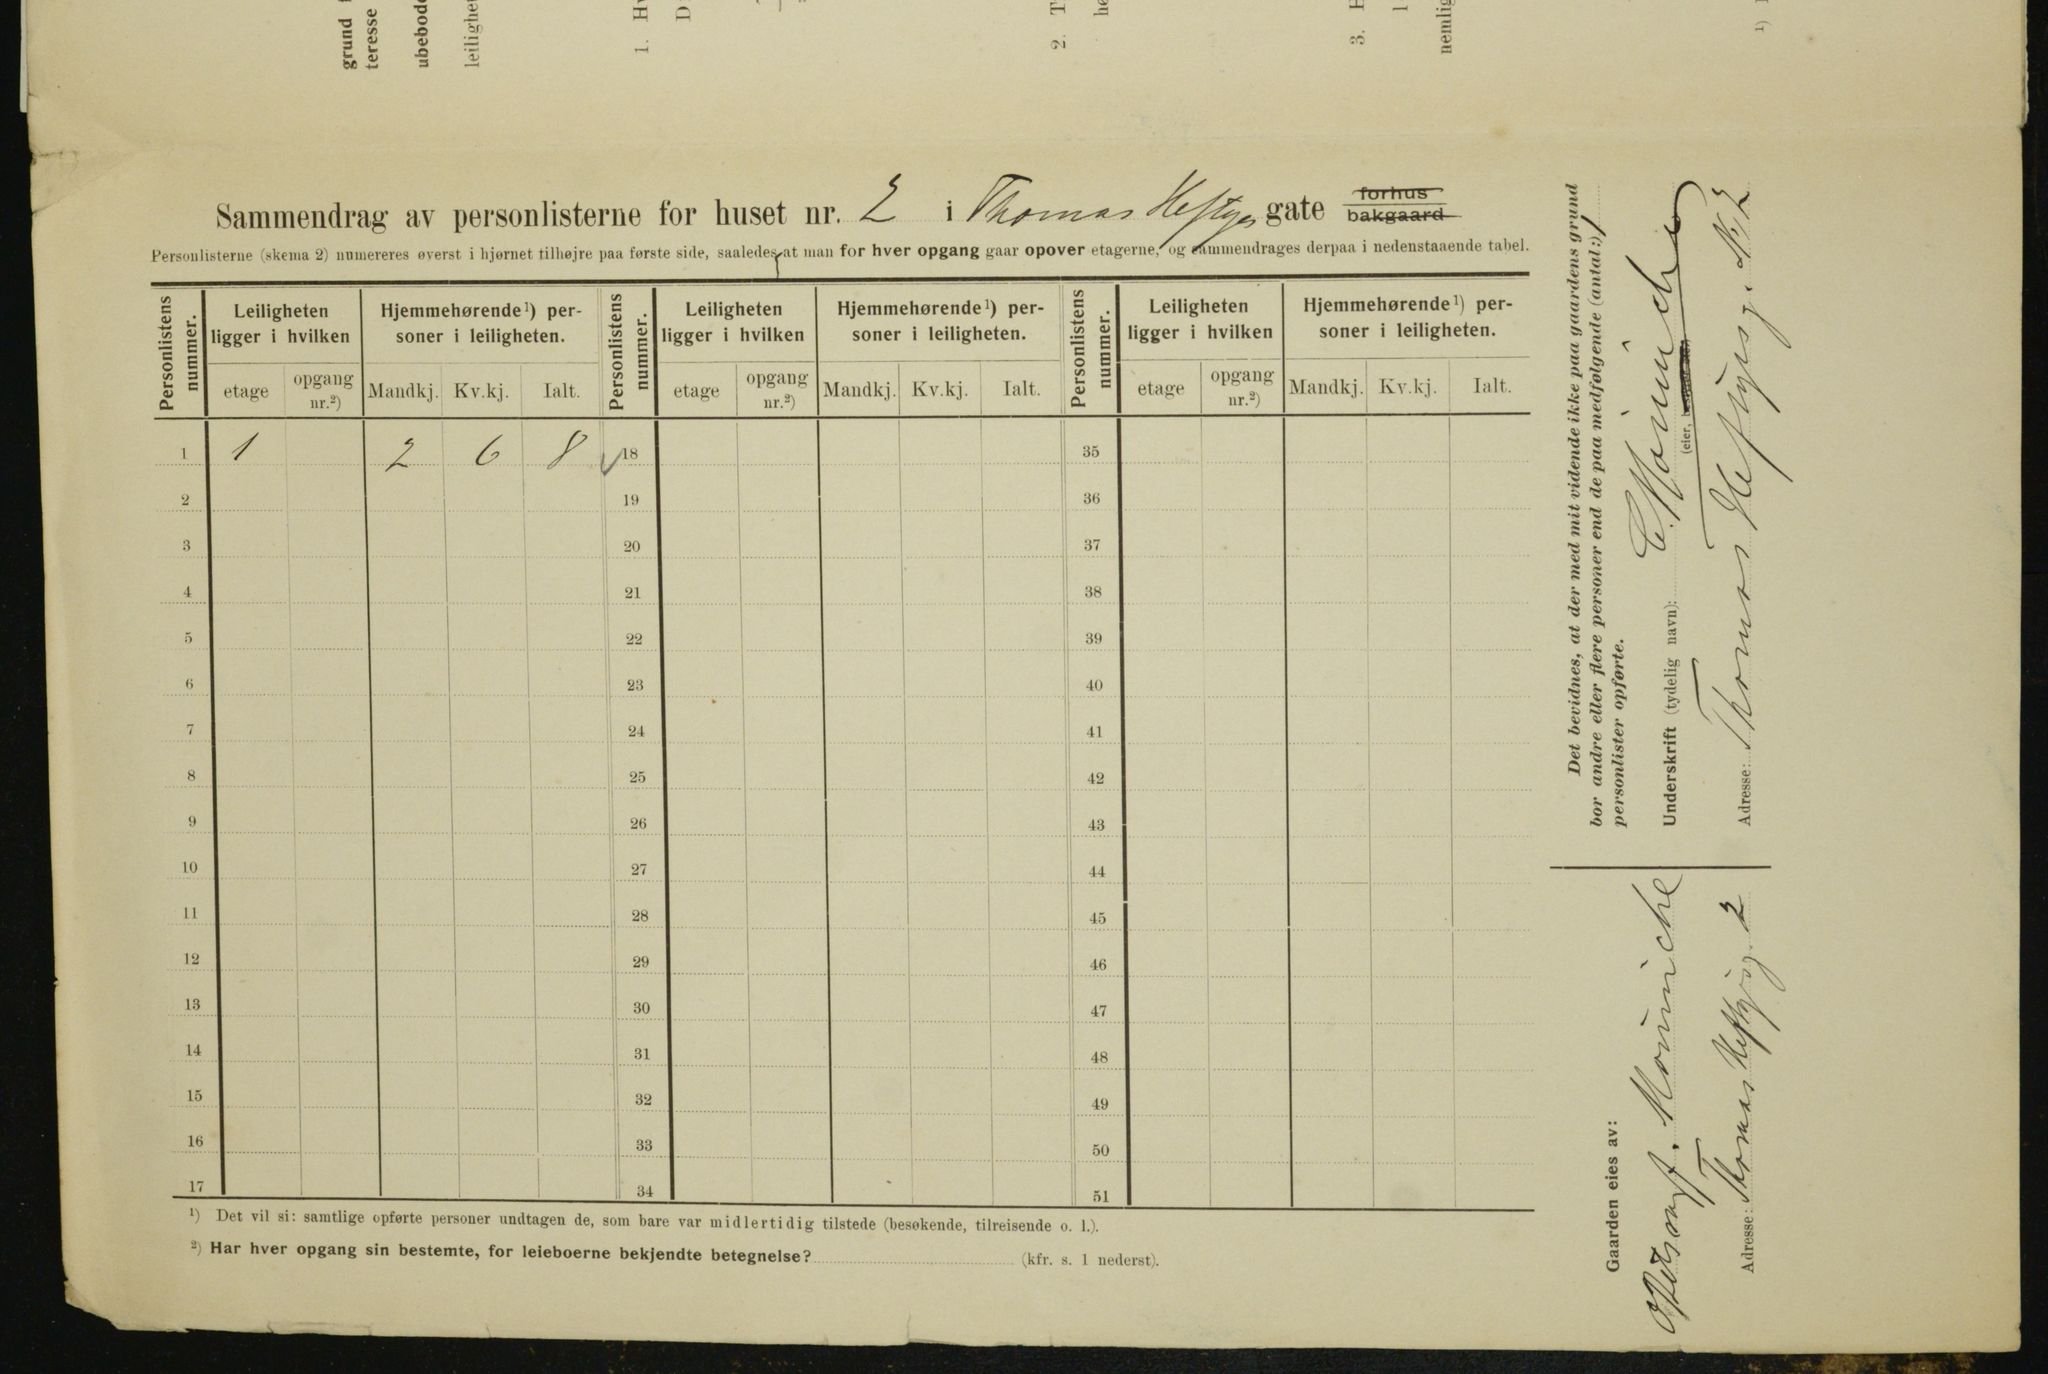 grund
teresse
ubebode
leilighet
1. Hv
D
2. T
he
3. H
nemlig
¹)
Sammendrag av personlisterne for huset nr. 2 i Thomas Heftyes gate forhus bakgaard
Personlisterne (skema 2) numereres øverst i hjørnet tilhøjre paa første side, saaledes, at man for hver opgang gaar opover etagerne, og sammendrages derpaa i nedenstaaende tabel.
Personlistens nummer. Leiligheten ligger i hvilken Hjemmehørende¹) personer i leiligheten. Personlistens nummer. Leiligheten ligger i hvilken Hjemmehørende¹) personer i leiligheten. Personlistens nummer. Leiligheten ligger i hvilken Hjemmehørende¹) personer i leiligheten.
etage opgang nr.²) Mandkj. Kv.kj. Ialt. etage opgang nr.²) Mandkj. Kv.kj. Ialt. etage opgang nr.²) Mandkj. Kv.kj. Ialt.
1 1 2 6 8 18 35
2 19 36
3 20 37
4 21 38
5 22 39
6 23 40
7 24 41
8 25 42
9 26 43
10 27 44
11 28 45
12 29 46
13 30 47
14 31 48
15 32 49
16 33 50
17 34 51
¹) Det vil si: samtlige opførte personer undtagen de, som bare var midlertidig tilstede (besøkende, tilreisende o. l.).
²) Har hver opgang sin bestemte, for leieboerne bekjendte betegnelse? (kfr. s. 1 nederst).
Det bevidnes, at der med mit vidende ikke paa gaardens grund
bor andre eller flere personer end de paa medfølgende (antal:) 1
personlister opførte.
Underskrift (tydelig navn): C. Mourniche
(eier,
Adresse: Thomas Heftyesg. No 2
Gaarden eies av:
Mourniche
Adresse: Thomas Heftyesg. 2